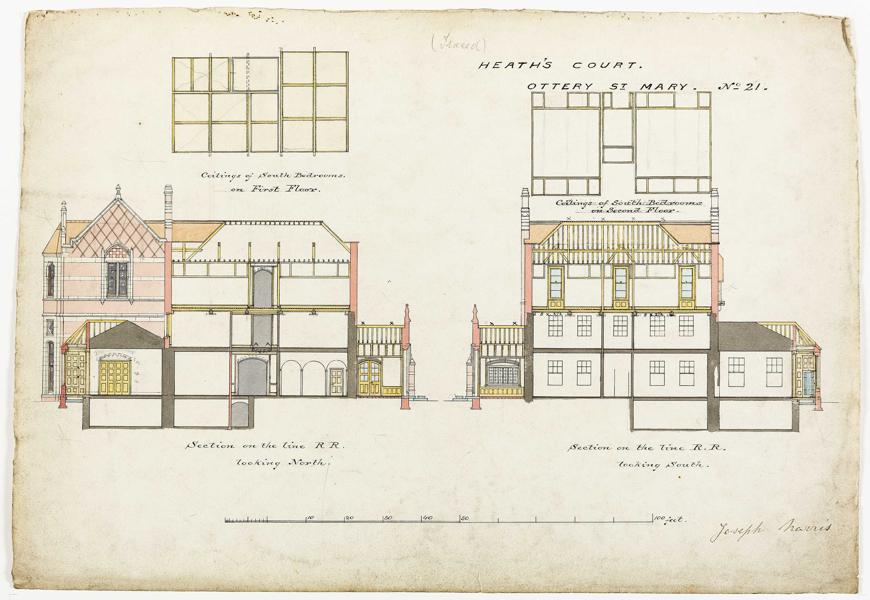 (Traced)
HEATH'S COURT.
OTTERY ST MARY. No 21.
Ceilings of South Bedrooms.
on First Floor.
Ceilings of South Bedrooms
on Second Floor.
Section on the line R.R.
looking North.
Section on the line R.R.
looking South.
10 20 30 40 50 100 feet.
Joseph Harris